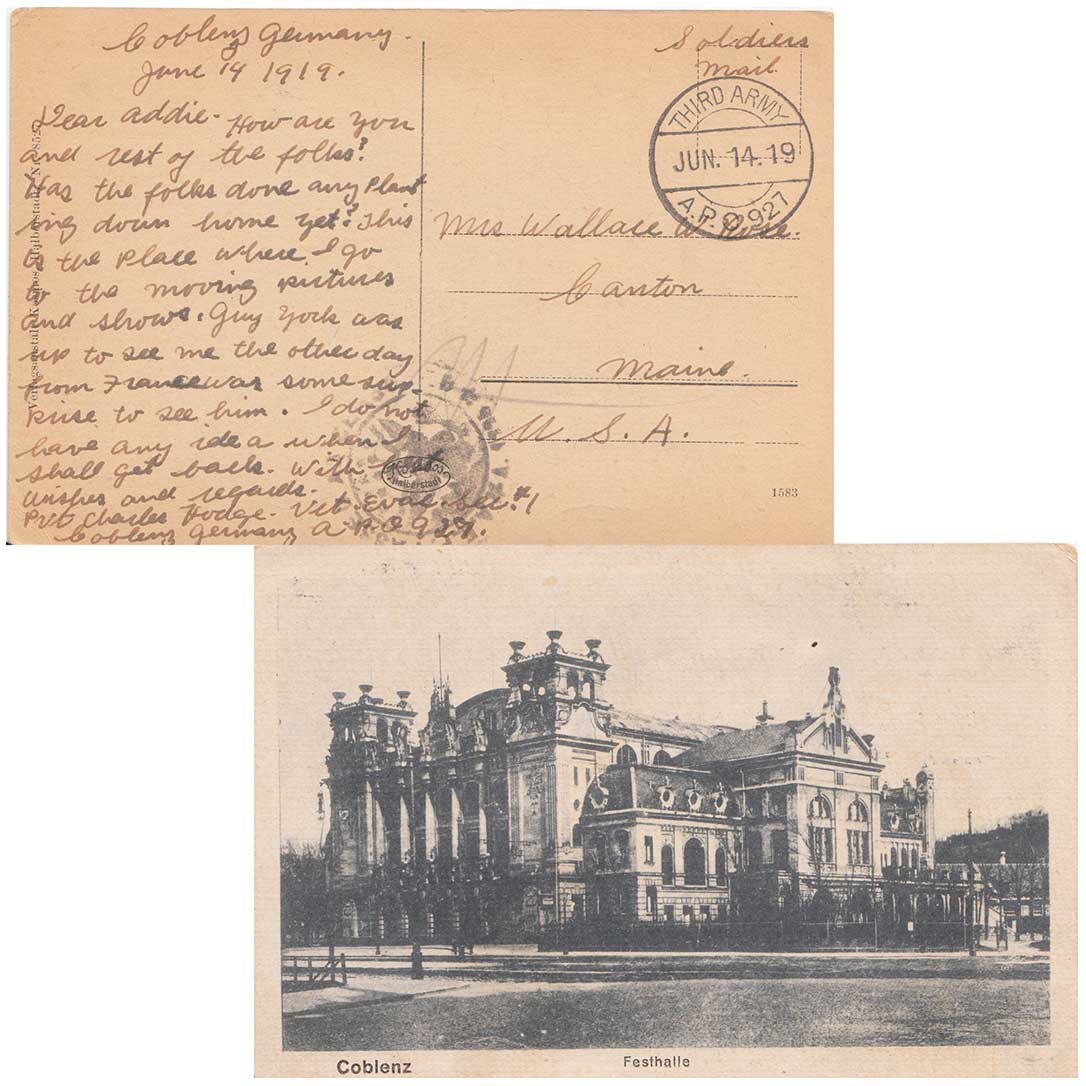 Coblenz Germany.
June 14 1919.
Dear Addie. How are you
and rest of the folks?
Has the folks done any Plant
ing down home yet? This
is the Place where I go
to the moving pictures
and shows. Guy York was
up to see me the other day
from France was some sup-
prise to see him. I do not
have any idea when I
shall get back. With best
wishes and regards.
Pvt Charles Hodge. Vet. Evac. Sec. #1
Coblenz Germany A.P.O 927.
Soldiers
Mail
THIRD ARMY
JUN. 14. 19
A.P.O. 927
Mrs Wallace W.
Canton
Maine.
U. S. A.
Halberstadt
1583
Coblenz
Festhalle